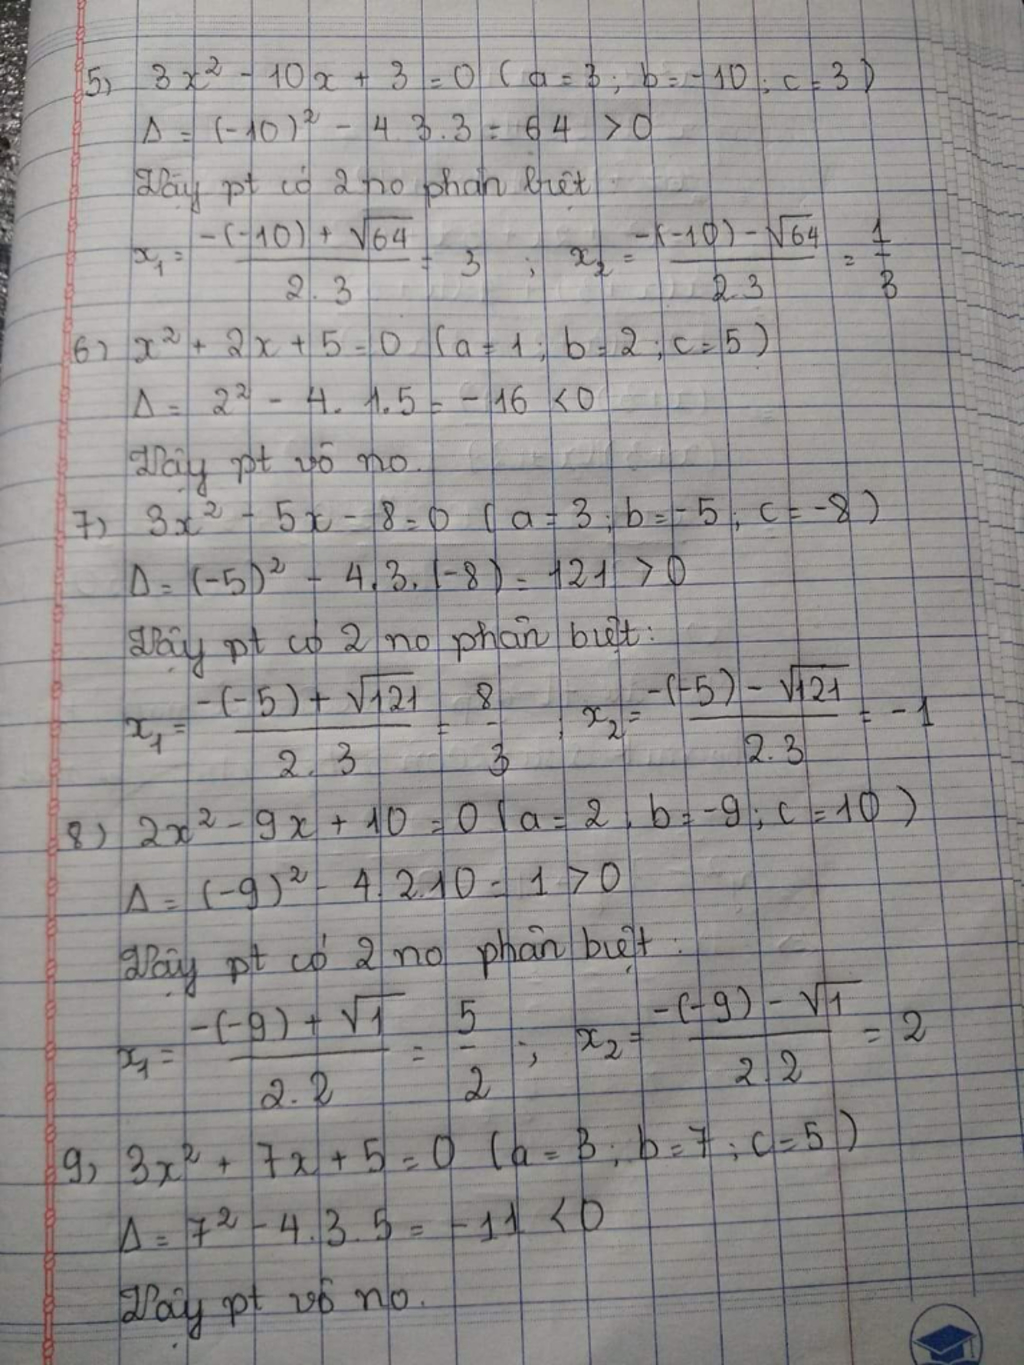 5) 3x² - 10x + 3 = 0 (a = 3 ; b = -10 ; c = 3)
Δ = (-10)² - 4.3.3 = 64 > 0
Vậy pt có 2 no phân biệt :
x₁ = -(-10) + √64 / 2.3 = 3 ; x₂ = -(-10) - √64 / 2.3 = 1/3
6) x² + 2x + 5 = 0 (a = 1 ; b = 2 ; c = 5)
Δ = 2² - 4.1.5 = -16 < 0
Vậy pt vô no.
7) 3x² - 5x - 8 = 0 (a = 3 ; b = -5 ; c = -8)
Δ = (-5)² - 4.3.(-8) = 121 > 0
Vậy pt có 2 no phân biệt :
x₁ = -(-5) + √121 / 2.3 = 8/3 ; x₂ = -(-5) - √121 / 2.3 = -1
8) 2x² - 9x + 10 = 0 (a = 2 ; b = -9 ; c = 10)
Δ = (-9)² - 4.2.10 = 1 > 0
Vậy pt có 2 no phân biệt :
x₁ = -(-9) + √1 / 2.2 = 5/2 ; x₂ = -(-9) - √1 / 2.2 = 2
9) 3x² + 7x + 5 = 0 (a = 3 ; b = 7 ; c = 5)
Δ = 7² - 4.3.5 = -11 < 0
Vậy pt vô no.